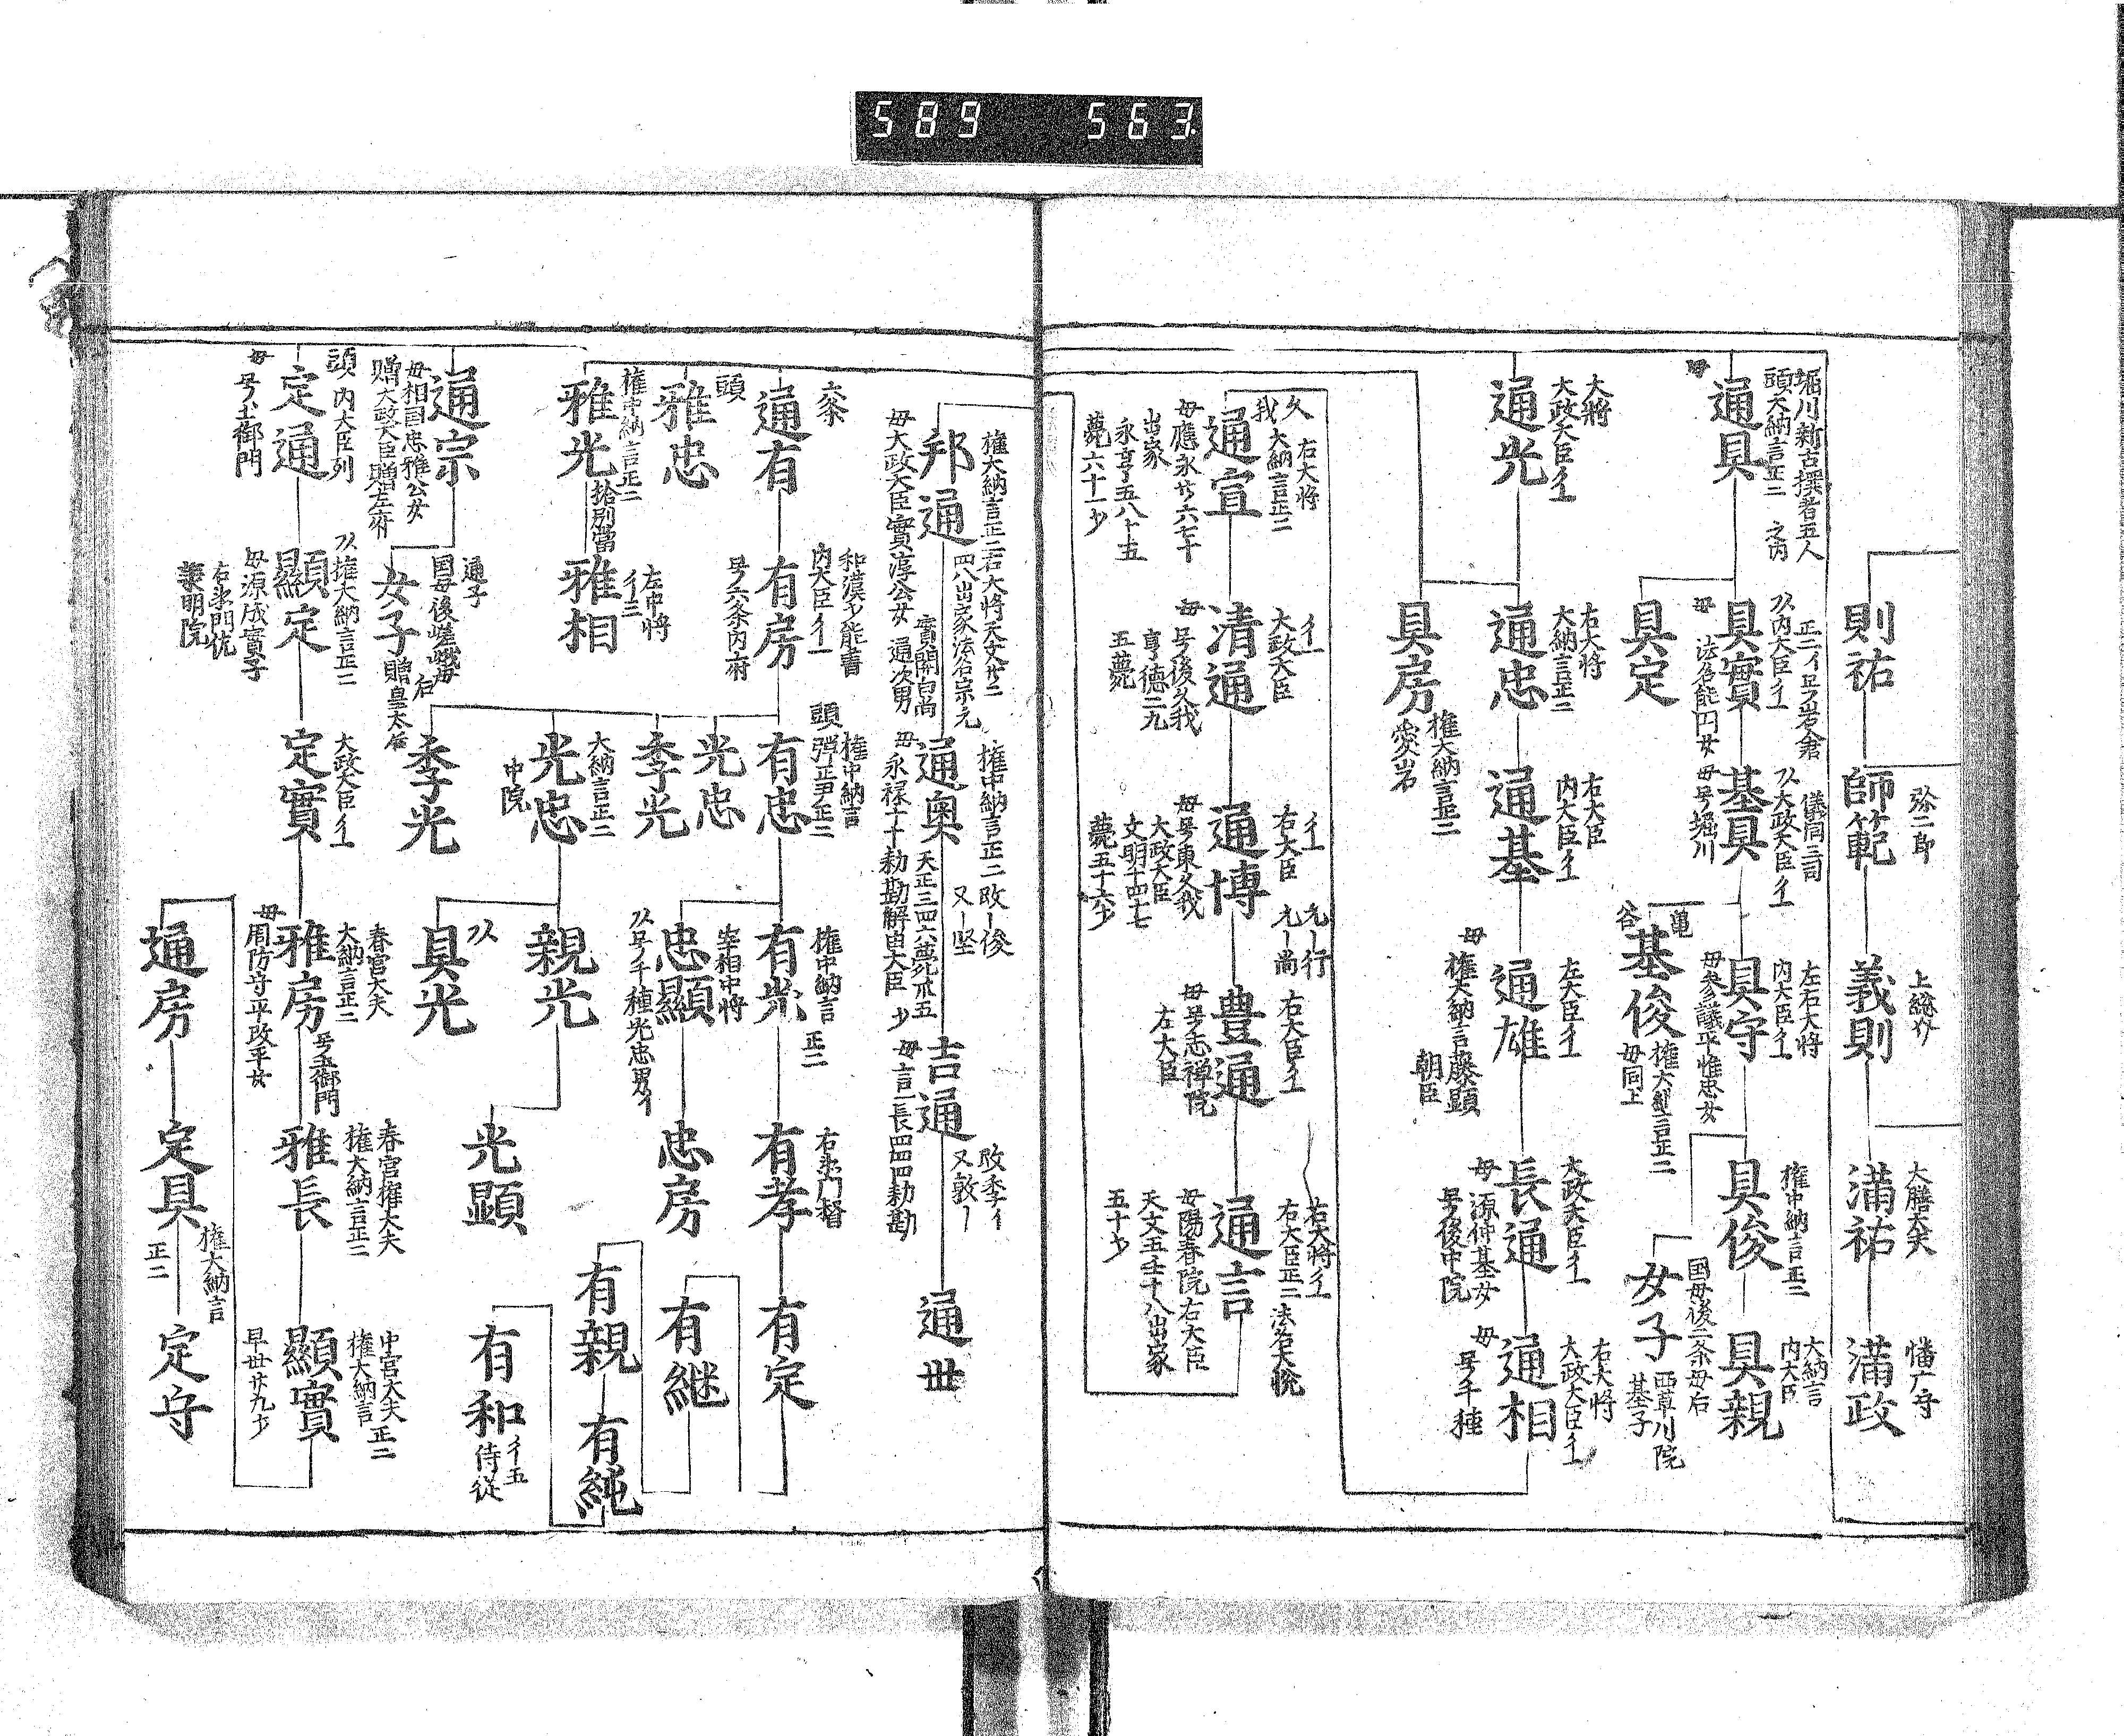 589 563
則祐
師範
弥二郎
義則
上総介
満祐
大膳大夫
満政
播广守
堀川新古撰者五人
之内
頭大納言正二
通具
母
具定
正二
内大臣
具實
母
法名能円女
儀同三司
大政大臣
基具
母号堀川
左右大将
内大臣
具守
母参議平惟忠女
亀
谷
基俊
権大納言正二
母同上
権中納言正三
具俊
国母後二条母后
女子
西華川院
基子
大納言
内大臣
具親
大将
大政大臣
通光
右大将
大納言正二
通忠
右大臣
内大臣
通基
左大臣
通雄
母
権大納言藤顕
朝臣
大政大臣
長通
母
源仲基女
号後中院
右大将
大政大臣
通相
母
号千種
具房
権大納言正二
愛岩
久
我
右大将
大納言正二
通宣
母應永廿六七十
出家
永享五八十五
薨六十一才
大政大臣
清通
母
号後久我
享徳二九
五薨
右大臣
通博
母号東久我
大政大臣
文明十四十七
薨五十六才
元行
元尚
右大臣
豊通
母号志禅院
左大臣
右大将
右大臣正二
通言
法名大悦
母陽春院右大臣
天文五壬十八出家
五十才
権大納言正二右大将天文卅二
四八出家法名宗元
邦通
實開白尚
通次男
母大政大臣實淳公女
権中納言正二
通奥
天正三四六薨卅五
才
母永禄十十勅勘解由大臣
改俊
又堅
吉通
改季
又敦
母言一長四四四勅勘
通世
六条
通有
和漢才能書
内大臣
有房
号六条内府
頭
権中納言
弾正尹正二
有忠
権中納言
正二
有光
右衛門督
有孝
有定
有継
光忠
宰相中将
忠顯
号千種光忠男
忠房
有親
有縄
季光
頭
雅忠
大納言正二
光忠
中院
親光
光顕
有和
五
侍従
権中納言正二
雅光
拾別當
左中将
三
雅相
季光
具光
通宗
母相国忠雅公女
贈大政大臣贈左府
通子
国母後嵯峨母
后
女子
贈皇太后
頭
内大臣列
定通
母
号土御門
権大納言正二
顯定
母源成實子
右衛門佐
蓑明院
大政大臣
定實
春宮大夫
大納言正二
雅房
号土御門
母周防守平政平女
春宮権大夫
権大納言正二
雅長
中宮大夫正二
権大納言
顯實
早世廿九才
通房
定具
権大納言
正二
定守